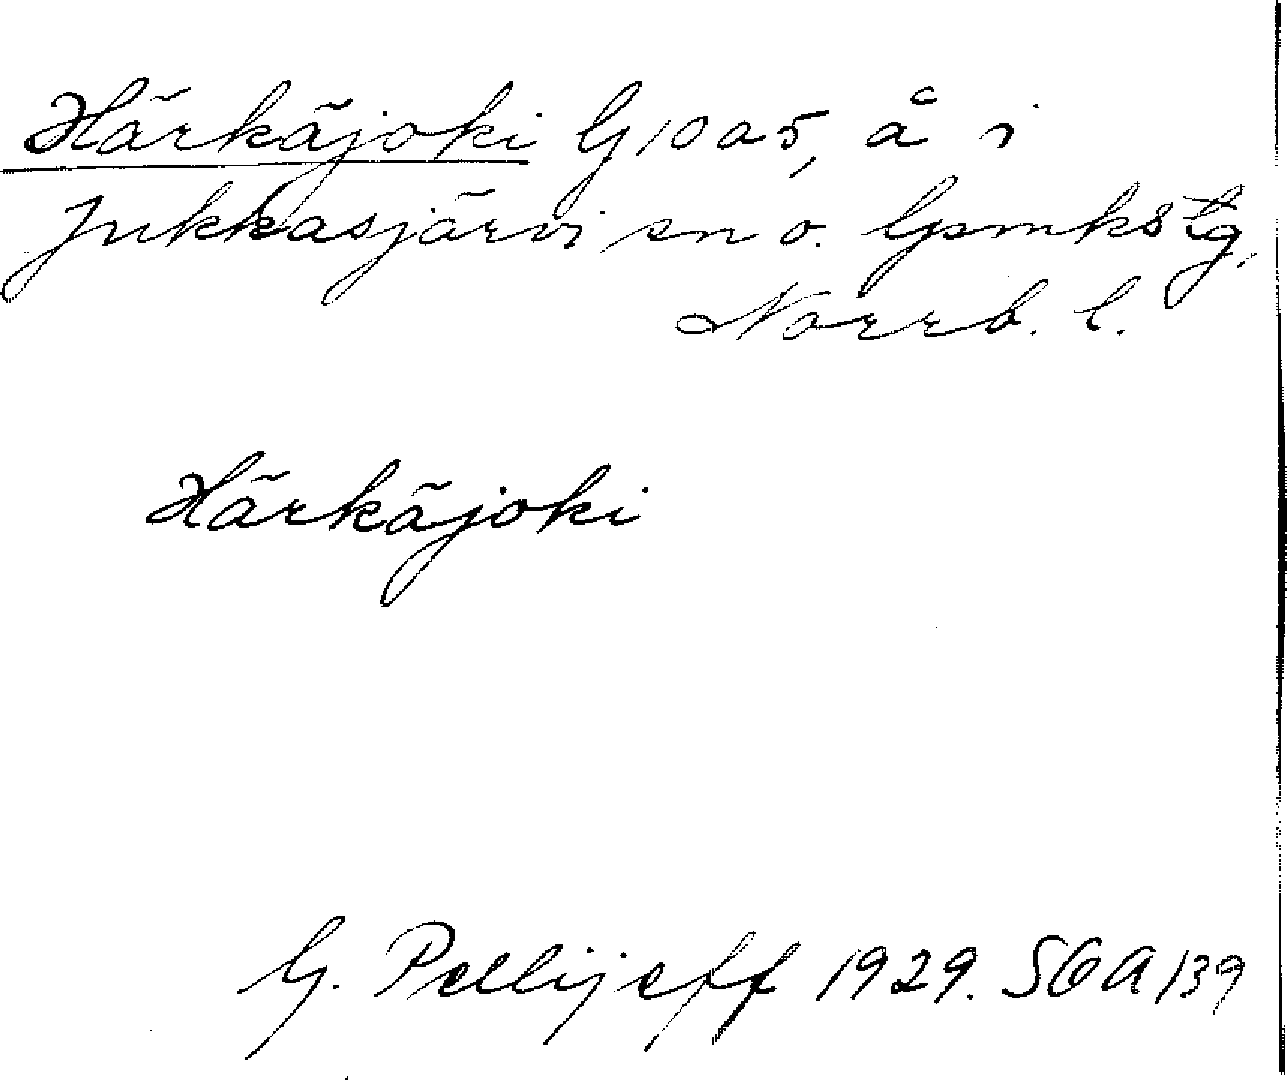 Härkäjoki G 10 a 5, å i
Jukkasjärvi sn o. lpsmkstg,
Norrb. l.
Härkäjoki
G. Pellijeff 1929. SGA 139